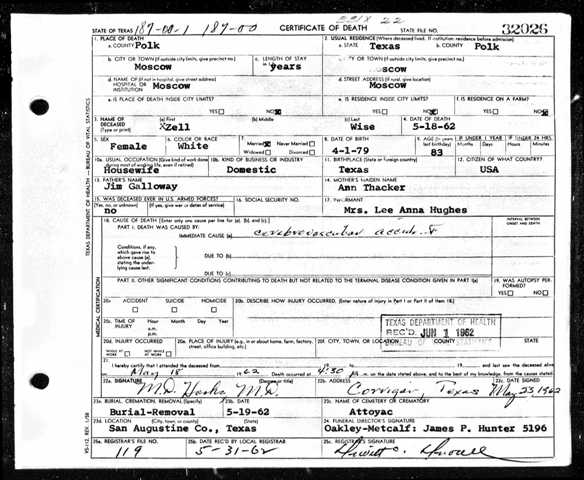 2218 22
STATE OF TEXAS 187-00-1 187-00 CERTIFICATE OF DEATH STATE FILE NO. 32026
1. PLACE OF DEATH 2. USUAL RESIDENCE (Where deceased lived. If institution: residence before admission)
a. COUNTY Polk a. STATE Texas b. COUNTY Polk
b. CITY OR TOWN (If outside city limits, give precinct no.) c. LENGTH OF STAY CITY OR TOWN (If outside city limits, give precinct no.)
Moscow years scow
d. NAME OF (If not in hospital, give street address) d. STREET ADDRESS (If rural, give location)
HOSPITAL OR INSTITUTION Moscow Moscow
e. IS PLACE OF DEATH INSIDE CITY LIMITS? e. IS RESIDENCE INSIDE CITY LIMITS? f. IS RESIDENCE ON A FARM?
YES NO YES NO YES NO
3. NAME OF DECEASED (a) First (b) Middle (c) Last 4. DATE OF DEATH
(Type or print) Xzell Wise 5-18-62
5. SEX 6. COLOR OR RACE 7. Married Never Married 8. DATE OF BIRTH 9. AGE (In years last birthday) IF UNDER 1 YEAR IF UNDER 24 HRS.
Female White Widowed Divorced 4-1-79 83 Months Days Hours Min.
10a. USUAL OCCUPATION (Give kind of work done during most of working life, even if retired) 10b. KIND OF BUSINESS OR INDUSTRY 11. BIRTHPLACE (State or foreign country) 12. CITIZEN OF WHAT COUNTRY?
Housewife Domestic Texas USA
13. FATHER'S NAME 14. MOTHER'S MAIDEN NAME
Jim Galloway Ann Thacker
15. WAS DECEASED EVER IN U.S. ARMED FORCES? 16. SOCIAL SECURITY NO. 17. INFORMANT
(Yes, no, or unknown) (If yes, give war or dates of service)
no Mrs. Lee Anna Hughes
18. CAUSE OF DEATH (Enter only one cause per line for (a), (b), and (c).) INTERVAL BETWEEN ONSET AND DEATH
PART I. DEATH WAS CAUSED BY:
IMMEDIATE CAUSE (a)
Conditions, if any, which gave rise to above cause (a), stating the underlying cause last.
DUE TO (b)
DUE TO (c)
PART II. OTHER SIGNIFICANT CONDITIONS CONTRIBUTING TO DEATH BUT NOT RELATED TO THE TERMINAL DISEASE CONDITION GIVEN IN PART I(a) 19. WAS AUTOPSY PERFORMED?
YES NO
20a. ACCIDENT SUICIDE HOMICIDE 20b. DESCRIBE HOW INJURY OCCURRED. (Enter nature of injury in Part I or Part II of item 18.)
20c. TIME OF INJURY Hour Month Day Year
a.m.
p.m.
TEXAS DEPARTMENT OF HEALTH
REC'D JUN 1 1962
BUREAU OF VITAL STATISTICS
20d. INJURY OCCURRED 20e. PLACE OF INJURY (e.g. in or about home, farm, factory, street, office building, etc.) 20f. CITY, TOWN, OR LOCATION COUNTY STATE
WHILE AT WORK NOT WHILE AT WORK
21. I hereby certify that I attended the deceased from
May 18 1962 Death occurred at 4:30 p.m. on the date stated above; and to the best of my knowledge, from the causes stated.
22a. SIGNATURE (Degree or title) 22b. ADDRESS 22c. DATE SIGNED
M.D. M.D. Corrigan, Texas May 23, 1962
23a. BURIAL, CREMATION, REMOVAL (Specify) 23b. DATE 23c. NAME OF CEMETERY OR CREMATORY
Burial-Removal 5-19-62 Attoyac
23d. LOCATION (City, town, or county) (State) 24. FUNERAL DIRECTOR'S SIGNATURE
San Augustine Co., Texas Oakley-Metcalf: James P. Hunter 5196
25a. REGISTRAR'S FILE NO. 25b. DATE REC'D BY LOCAL REGISTRAR 25c. REGISTRAR'S SIGNATURE
119 5-31-62
TEXAS DEPARTMENT OF HEALTH — BUREAU OF VITAL STATISTICS
MEDICAL CERTIFICATION
VS-112, REV. 1/58